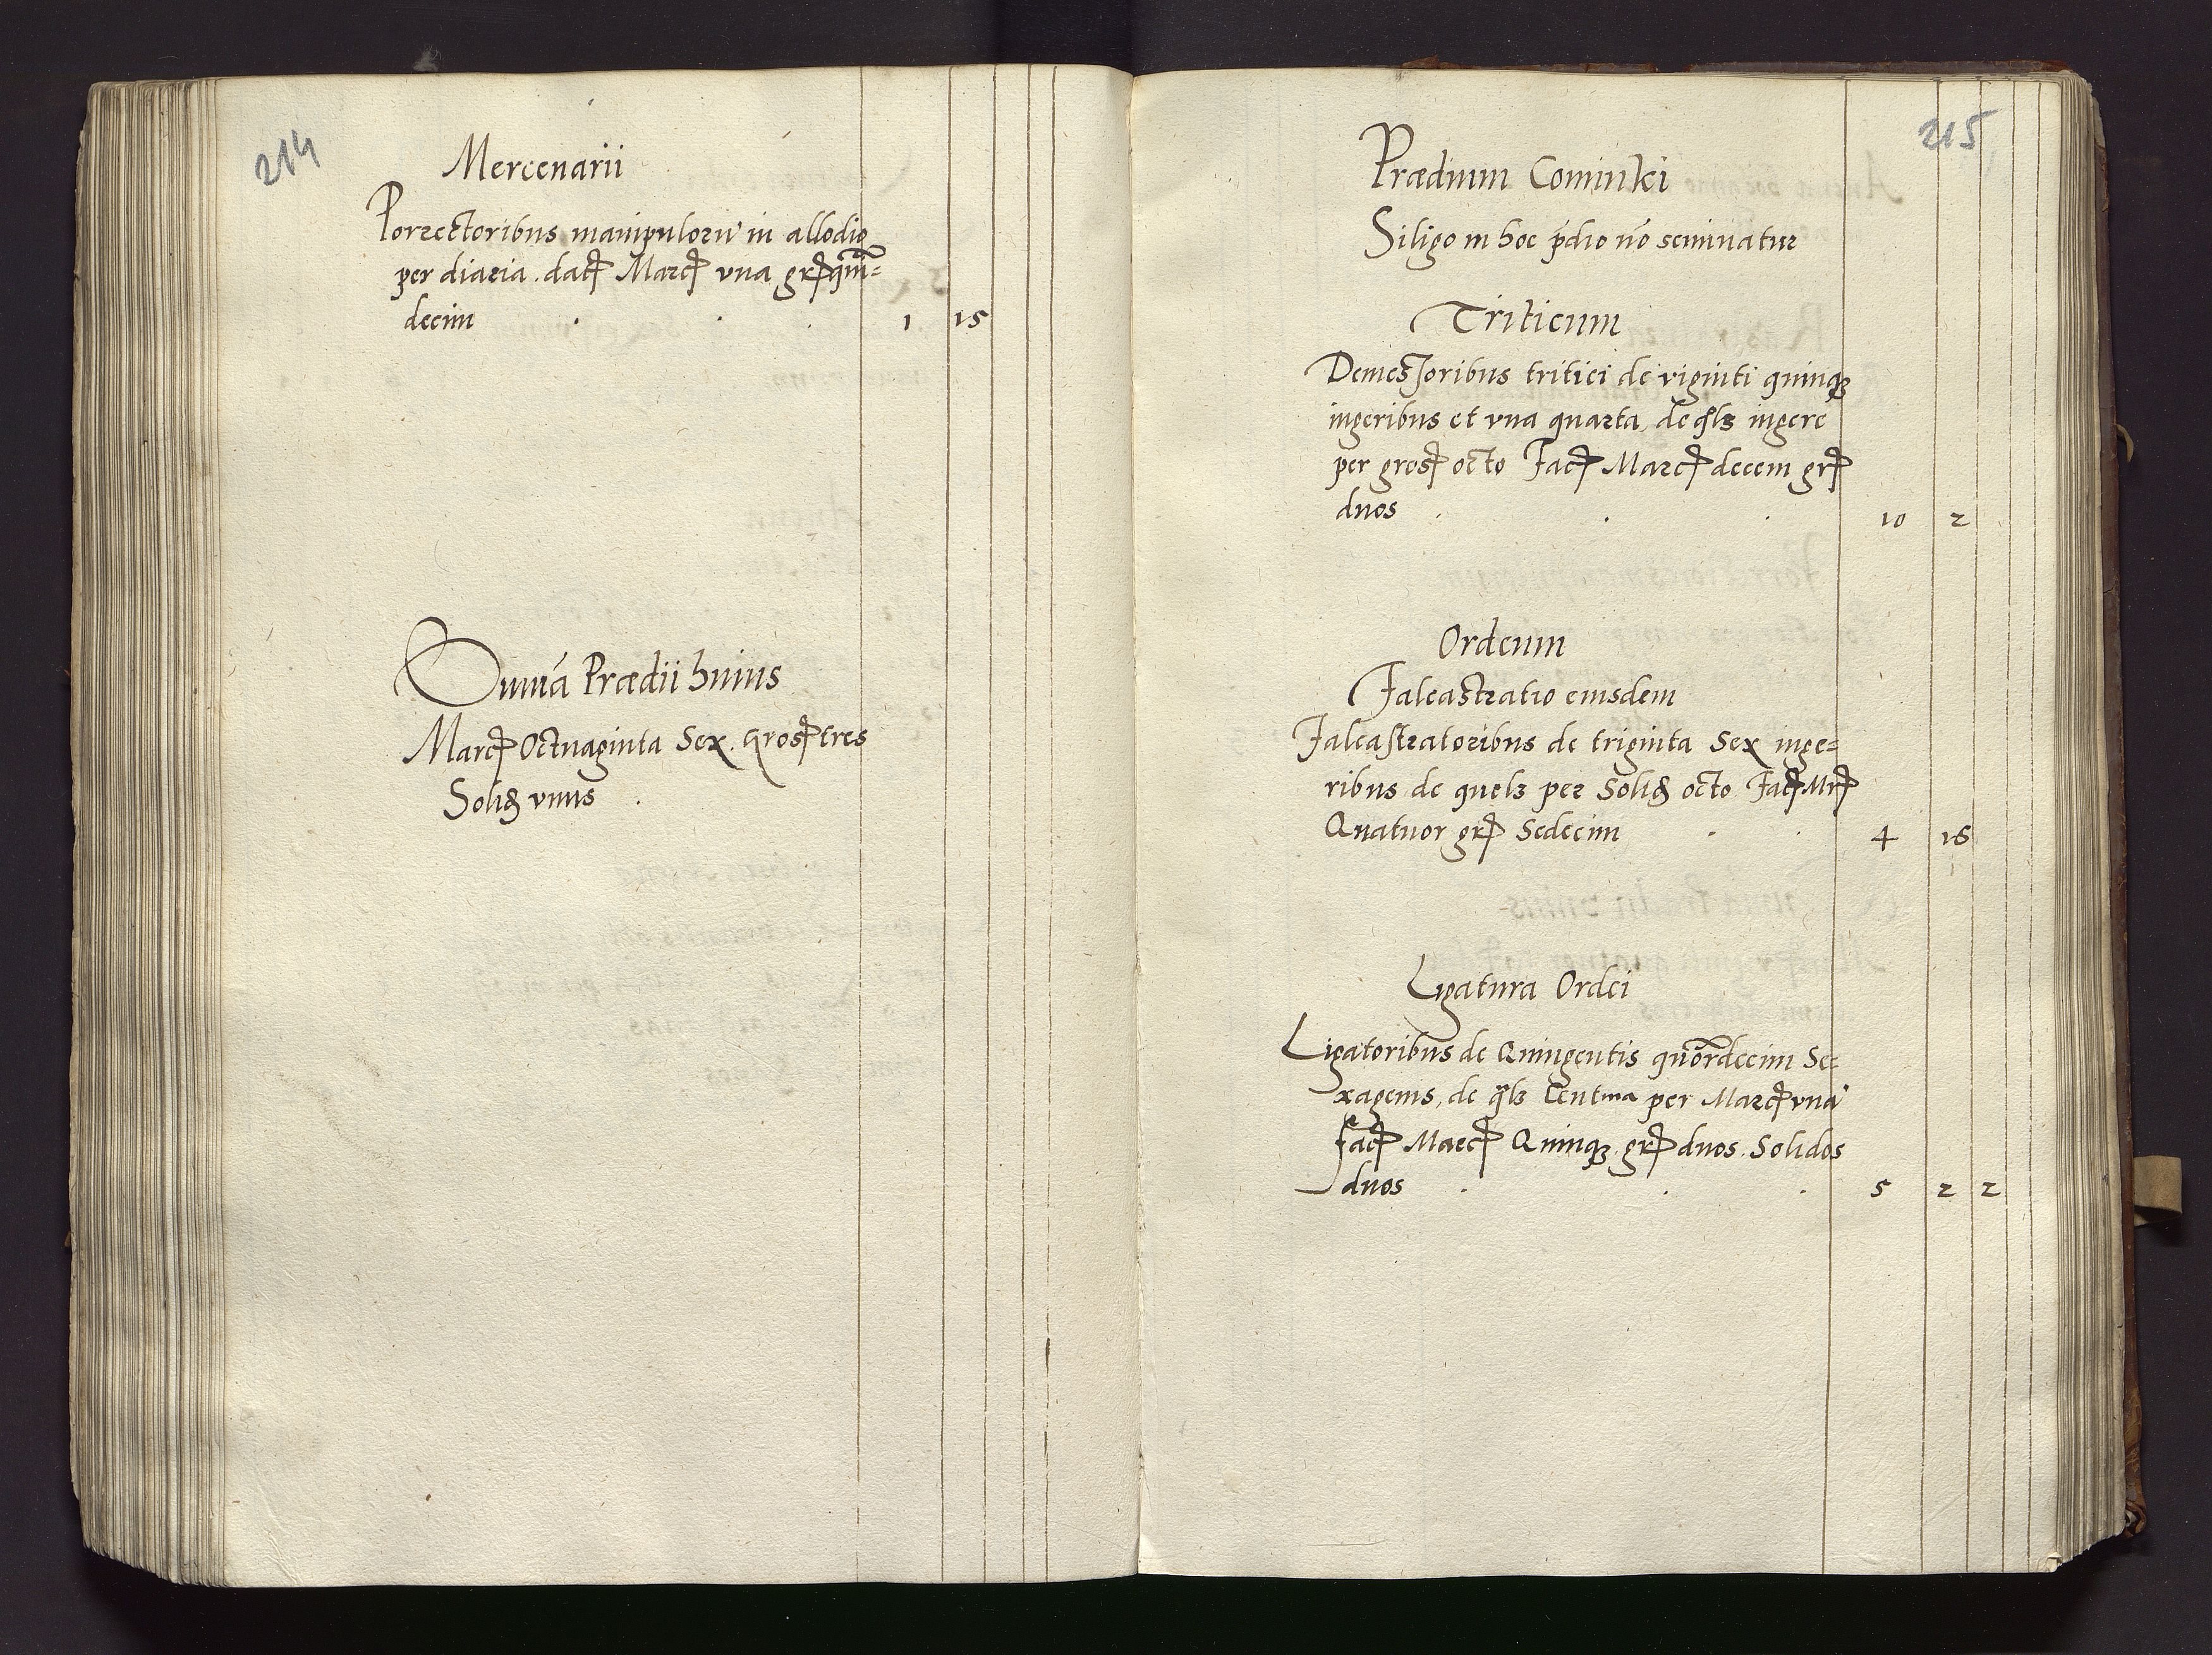 214
Mercenarii
Porrectoribus manipuloru in allodio
per diaria. dat Marc vna gr quin=
decim . . . 1 15
Summa Prædii huius
Marc Octuaginta Sex. Gros tres
Solid vnus .
215
Prædium Cominki
Siligo in hoc pdio no seminatur
Triticum
Demessoribus tritici de viginti quinqz
iugeribus et vna quarta, de qlz iugere
per gros octo Fac Marc decem gr
duos . . . 10 2
Ordeum
Falcastratio eiusdem
Falcastratoribus de triginta Sex iuge=
ribus de quolz per Solid octo Fac Mr
Quatuor gr Sedecim . . 4 16
Ligatura Ordei
Ligatoribus de Quingentis quordecim Se=
xagenis, de qlz Centena per Marc vna
Fac Marc Quinqz gr duos Solidos
duos . . . 5 2 2